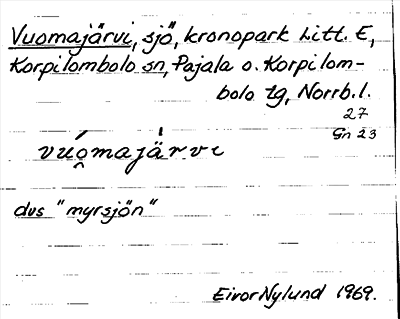 Vuomajärvi, sjö, kronopark Litt. E,
Korpilombolo sn, Pajala o. Korpilom-
bolo tg, Norrb. l.
27
Gn 23
vuó̯majä́rvi
dvs "myrsjön"
Eivor Nylund 1969.